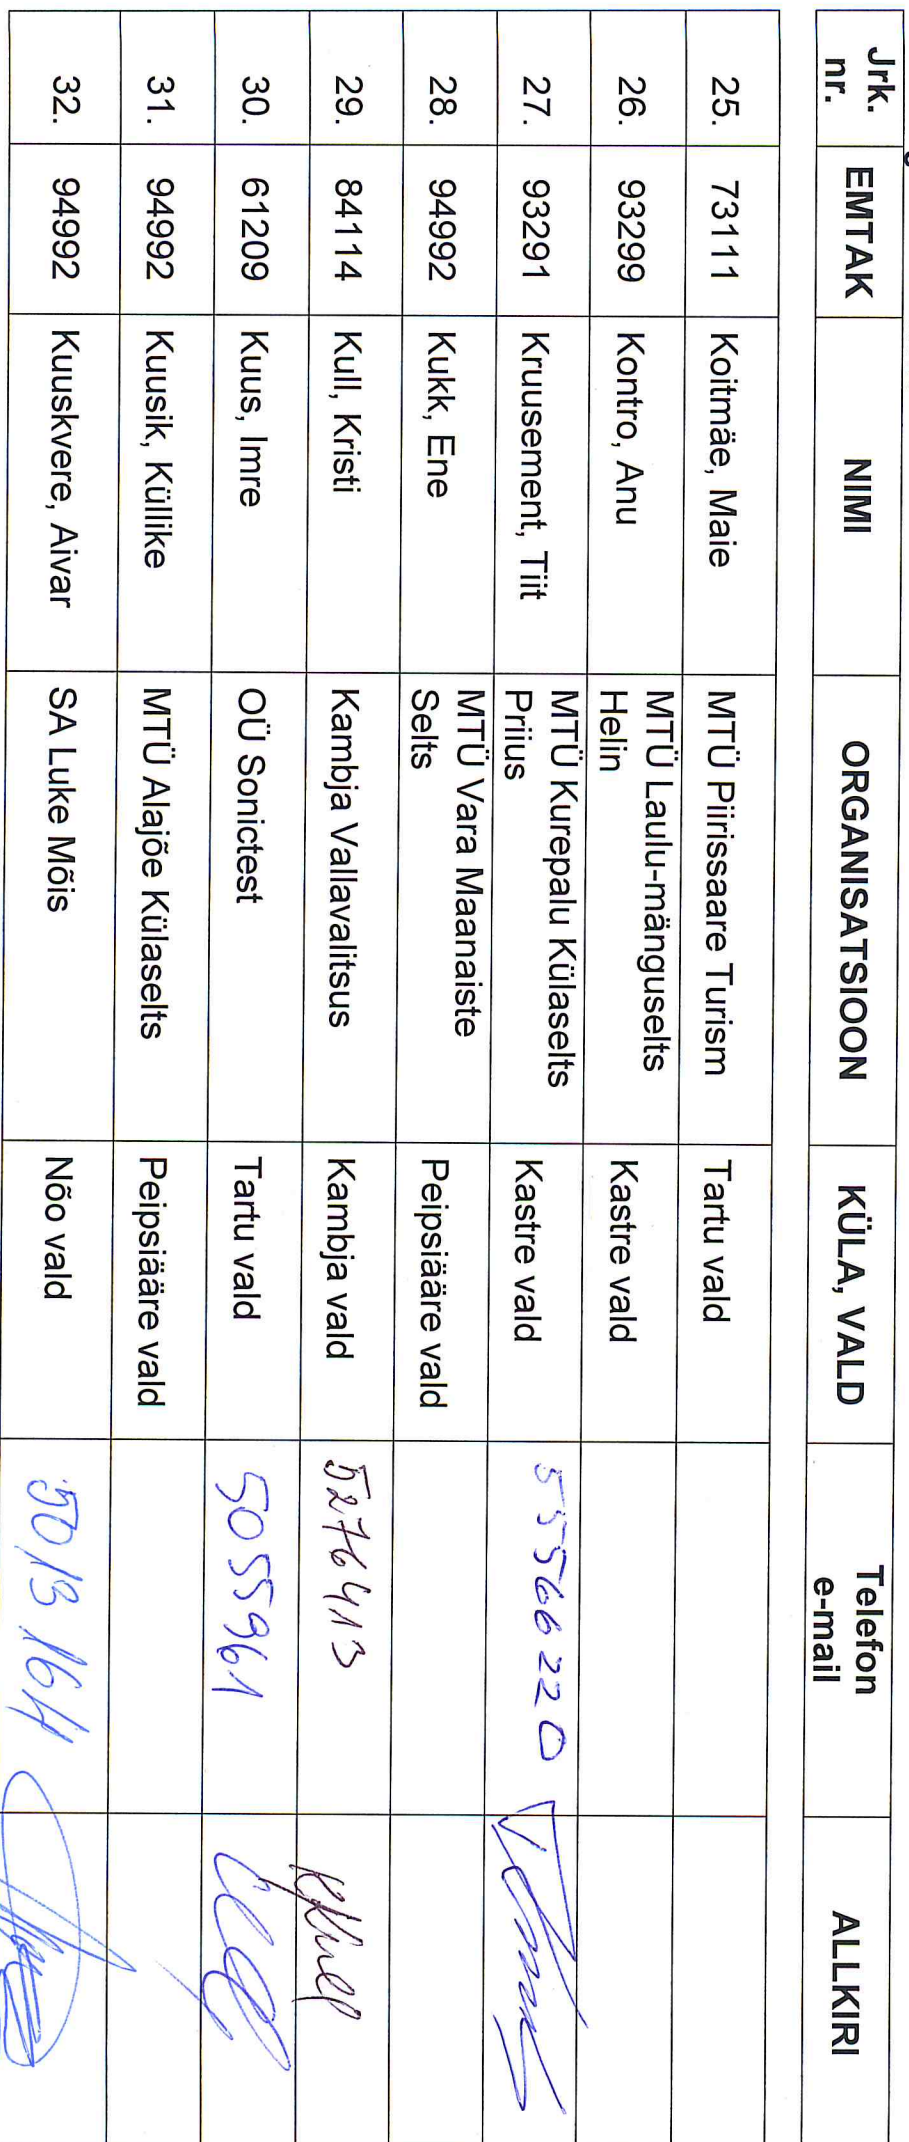 Jrk. nr. EMTAK NIMI ORGANISATSIOON KÜLA, VALD Telefon e-mail ALLKIRI
25. 73111 Koitmäe, Maie MTÜ Piirissaare Turism Tartu vald
26. 93299 Kontro, Anu MTÜ Laulu-mänguselts Kastre vald
Helin
27. 93291 Kruusement, Tiit MTÜ Kurepalu Külaselts Kastre vald 55566220
Priius
28. 94992 Kukk, Ene MTÜ Vara Maanaiste Peipsiääre vald
Selts
29. 84114 Kull, Kristi Kambja Vallavalitsus Kambja vald 5276413
30. 61209 Kuus, Imre OÜ Sonictest Tartu vald 5055961
31. 94992 Kuusik, Küllike MTÜ Alajõe Külaselts Peipsiääre vald
32. 94992 Kuuskvere, Aivar SA Luke Mõis Nõo vald 5013164